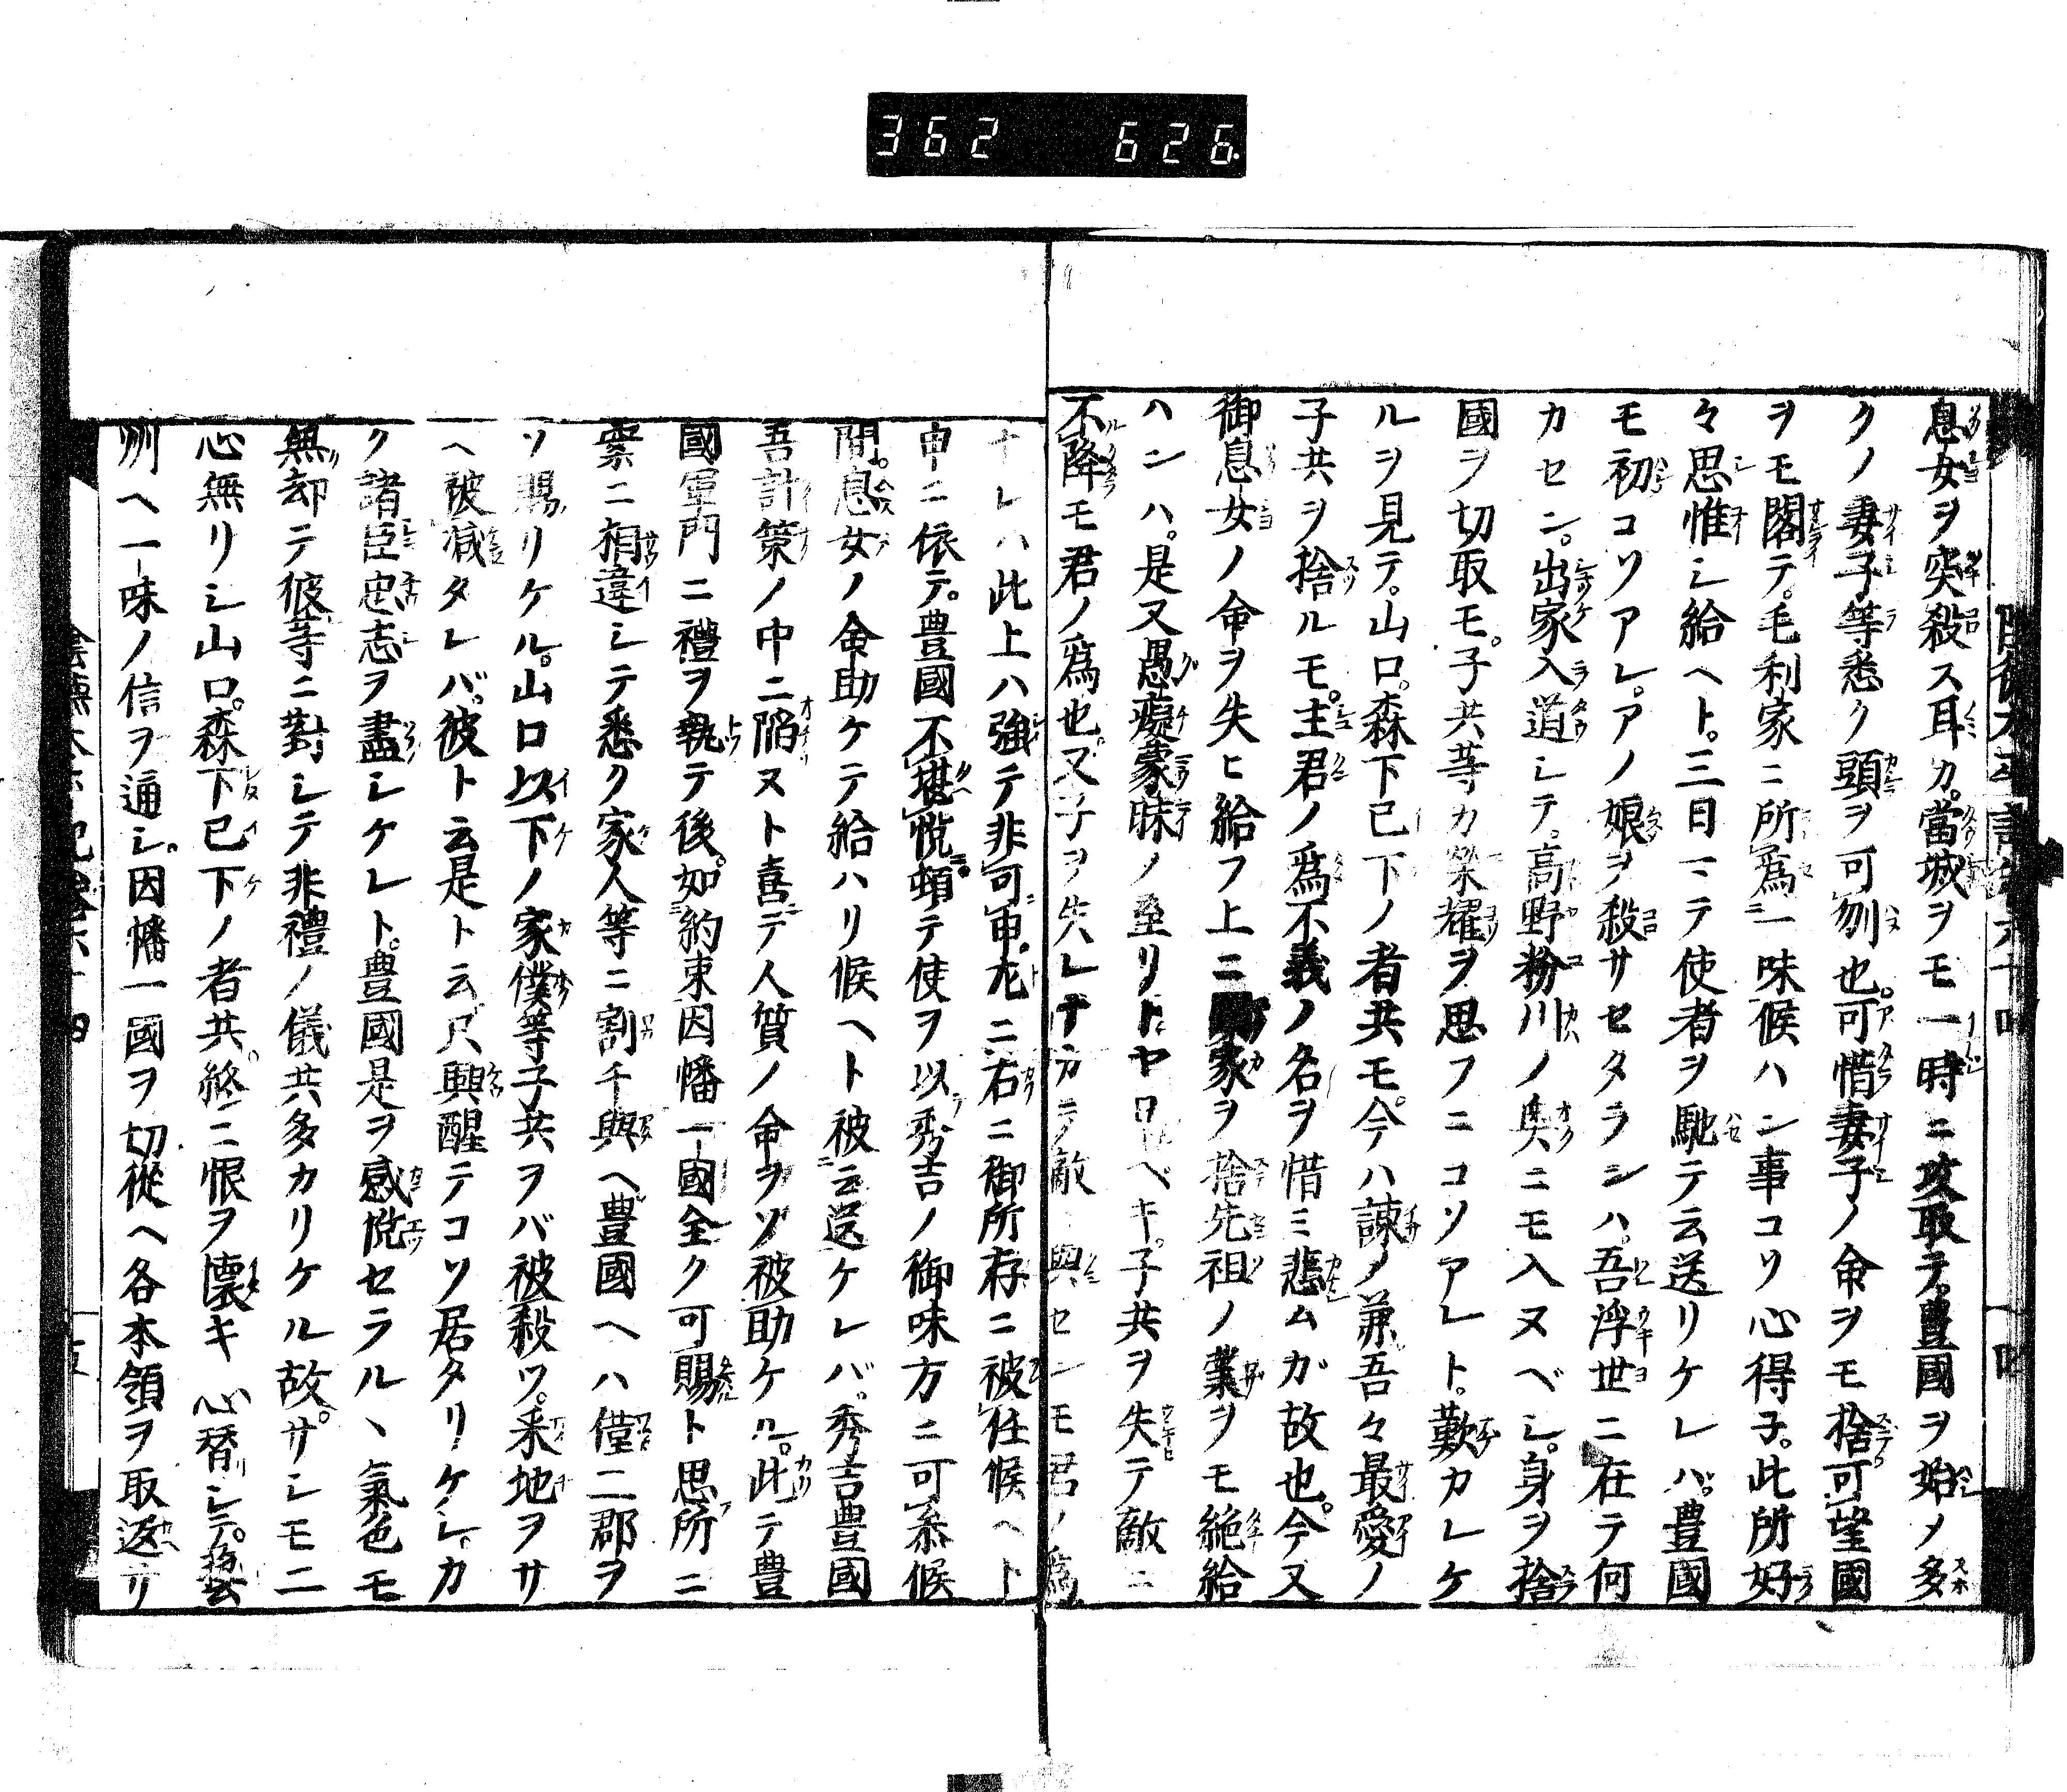 362 626
息女ヲ突殺ス耳カ。當城ヲモ一時ニ攻取テ。豊國ヲ始ノ多
クノ妻子等悉ク頭ヲ可刎也。可惜妻子ノ命ヲモ捨可望國
ヲモ閣テ。毛利家ニ所爲一味候ハン事コソ心得子。此所好
々思惟シ給ヘト。三日ニテ使者ヲ馳テ云送リケレハ。豊國
モ初コソアレ。アノ娘ヲ殺サセタランハ。吾浮世ニ在テ何
カセン。出家入道シテ。高野粉川ノ奥ニモ入ヌベシ。身ヲ捨
國ヲ切取モ。子共等カ榮耀ヲ思フニコソアレト。歎カレケ
ルヲ見テ。山口。森下已下ノ者共モ。今ハ諫メ兼吾々最愛ノ
子共ヲ捨ルモ。主君ノ爲不義ノ名ヲ惜ミ悲ムガ故也。今又
御息女ノ命ヲ失ヒ給フ上ニ家ヲ捨先祖ノ業ヲモ絶給
ハンハ。是又愚癡蒙昧ノ至リトヤ云ベキ。子共ヲ失テ敵ニ
不降モ君ノ爲也。又子ヲ失レナカラ敵ニ與センモ君ノ爲
ナレハ此上ハ強テ非可申。左ニ右ニ御所存ニ被任候ヘト
申ニ依テ。豊國不堪悦。頓テ使ヲ以秀吉ノ御味方ニ可参候
間。息女ノ命助ケテ給ハリ候ヘト被云送ケレバ。秀吉豊國
吾計策ノ中ニ陥ヌト喜テ人質ノ命ヲゾ被助ケル。此テ豊
國軍門ニ禮ヲ執テ後。如約束因幡一國全ク可賜ト思所ニ
案ニ相違シテ悉ク家人等ニ割千與ヘ豊國ヘハ僅二郡ヲ
ソ賜リケル。山口以下ノ家僕等子共ヲバ被殺ツ。釆地ヲサ
ヘ被減タレバ。彼ト云是ト云尺興醒テコソ居タリケレ。カ
ク諸臣忠志ヲ盡シケレト。豊國是ヲ感悦セラルヽ氣色モ
無却テ彼等ニ對シテ非禮ノ儀共多カリケル故。サシモ二
心無リシ山口。森下已下ノ者共。終ニ恨ヲ懐キ心替シテ。藝
州ヘ一味ノ信ヲ通シ。因幡一國ヲ切從ヘ各本領ヲ取返リ